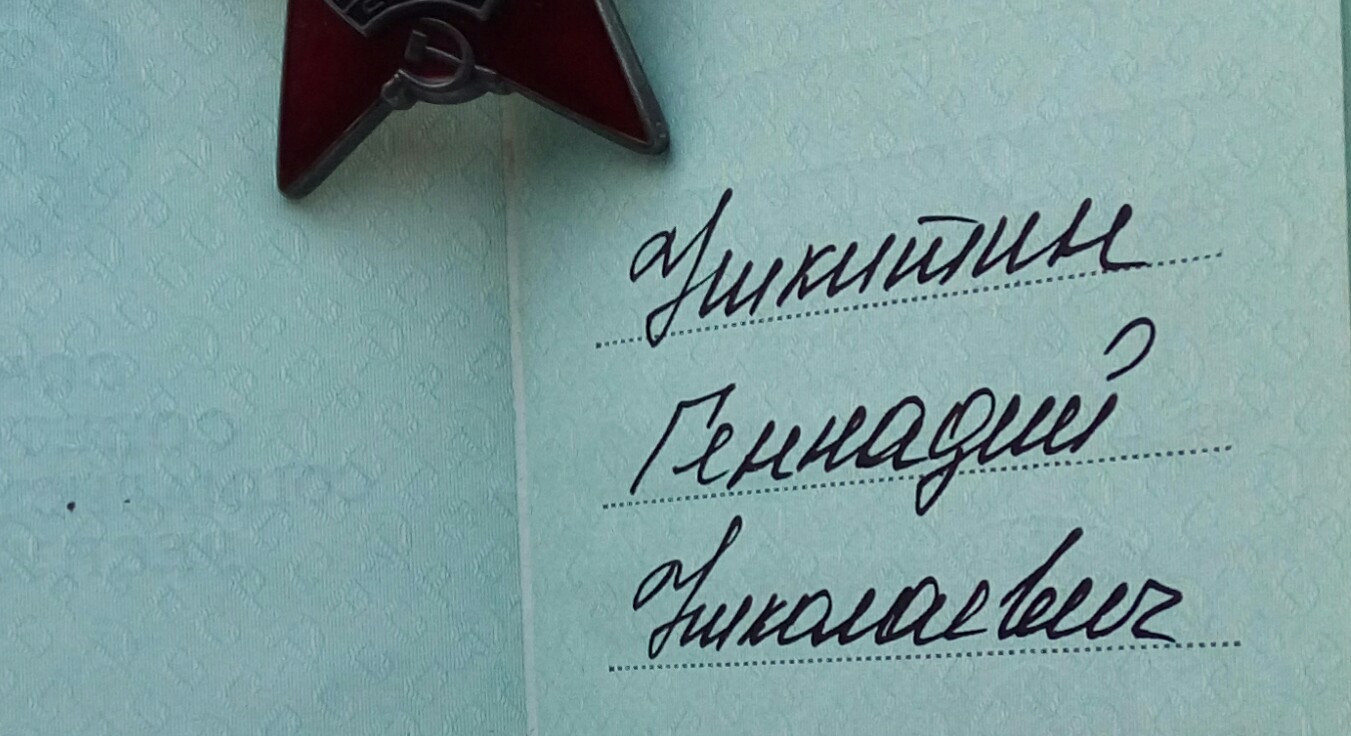 Никитин
Геннадий
Николаевич